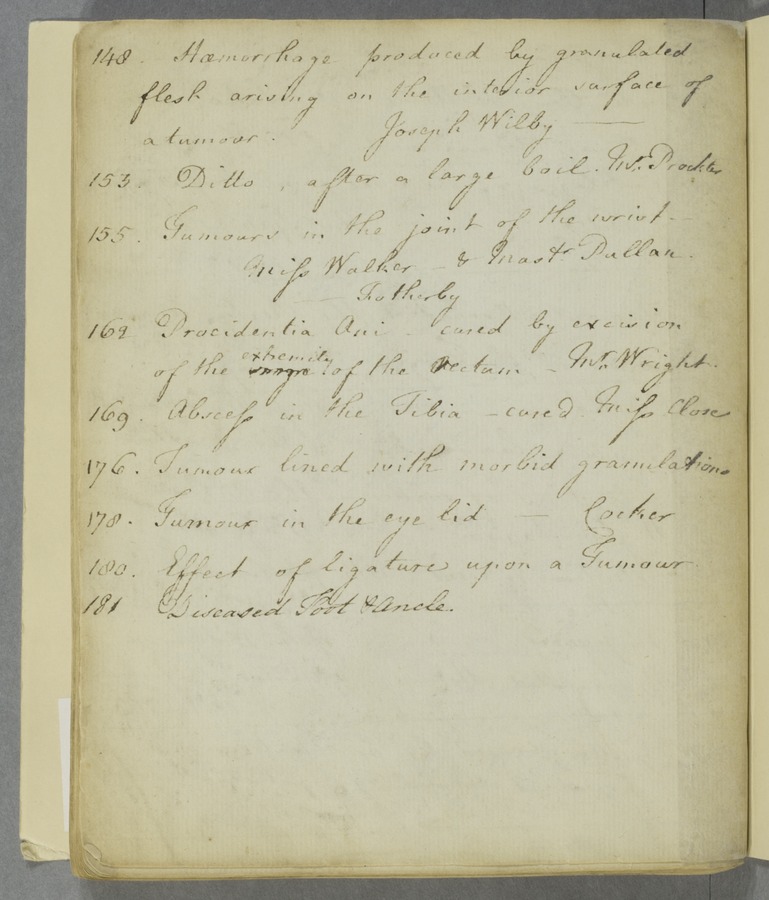 148. Hæmorrhage produced by granulated
flesh arising on the interior surface of
a tumour. Joseph Wilby —
153. Ditto, after a large boil. Mr. Prockter
155. Tumours in the joint of the wrist —
Miss Walker — & Mastr. Pullan.
— Fotherby
162 Procidentia Ani — cured by excision
extremity
of the of the Rectum — Mr. Wright.
169. Abscess in the Tibia — cured. Miss Close
176. Tumour lined with morbid granulations
178. Tumour in the eye lid — Cocker
180. Effect of ligature upon a Tumour
181 Diseased Foot & Ancle.